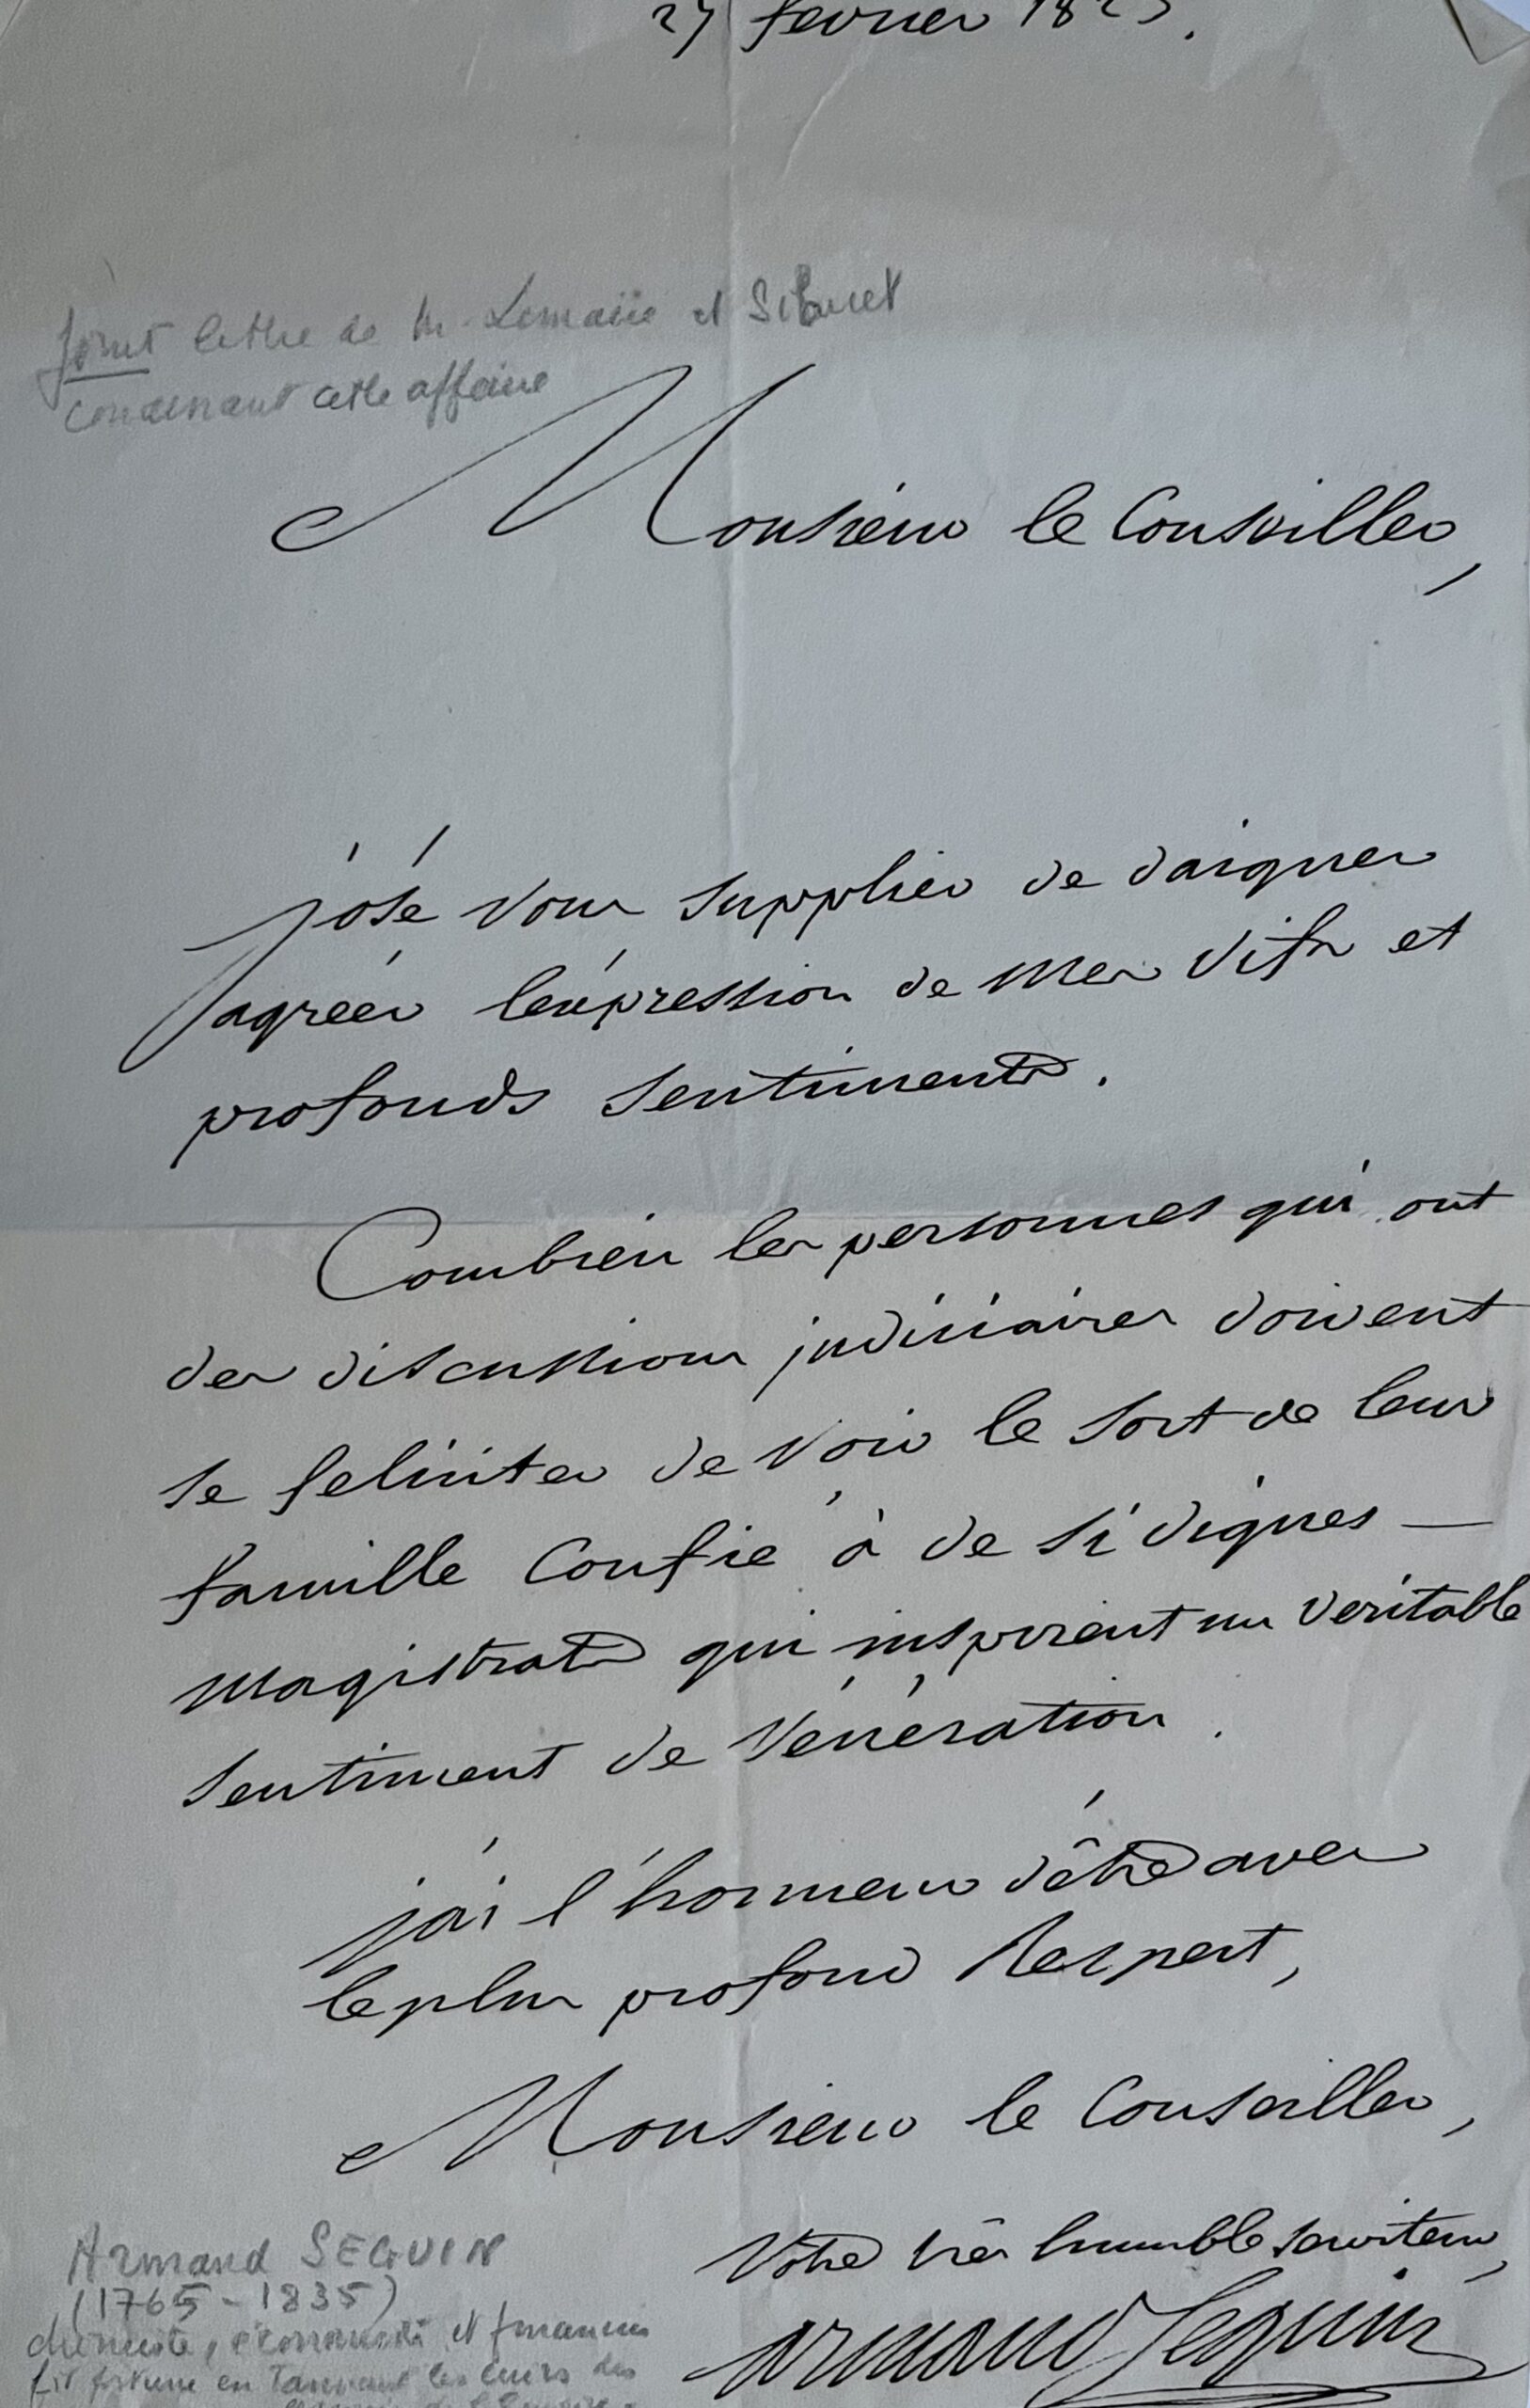 février 182
Joint lettre de M. Lemaire et
concernant cette affaire
Monsieur le Conseiller,
j'ose vous supplier de daigner
agréer l'expression de mes vifs et
profonds sentiments.
Combien les personnes qui ont
des discussions judiciaires doivent
se feliciter de voir le sort de leur
famille Confié à de si dignes —
magistrats qui inspirent un veritable
sentiment de Vénération.
j'ai l'honneur d'être avec
le plus profond Respect,
Monsieur le Conseiller,
Votre très humble serviteur,
Armand Seguin
Armand SEGUIN
(1765-1835)
chimiste, économiste et financier
fit fortune en tannant les cuirs des